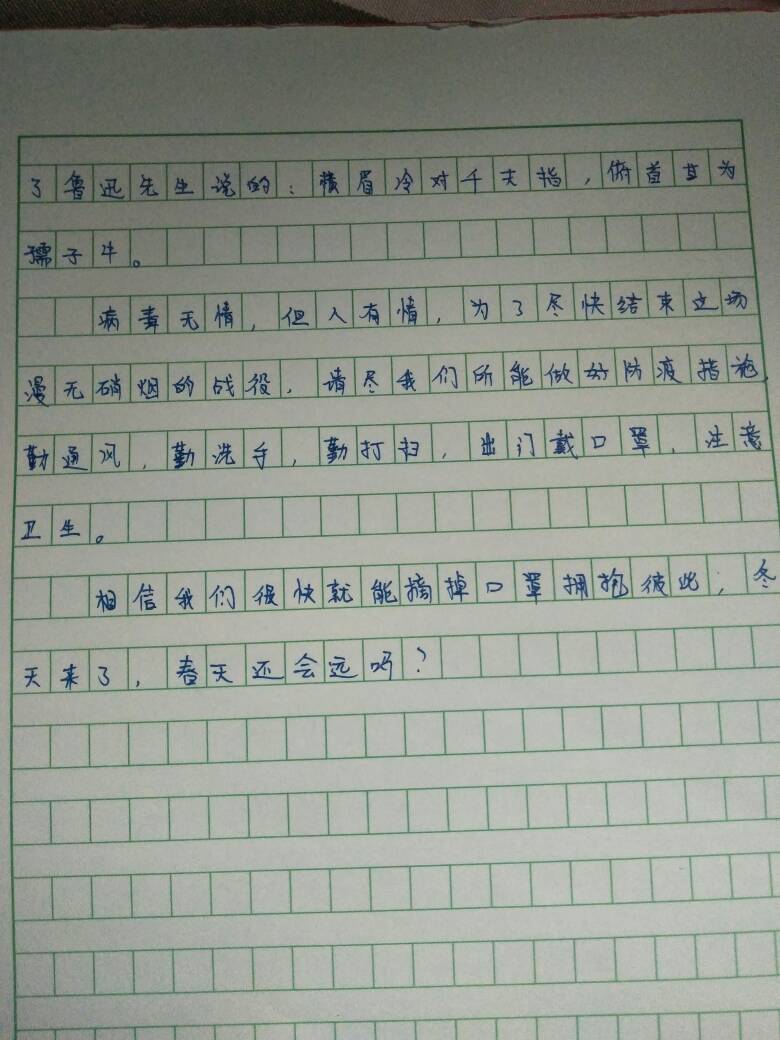 了鲁迅先生说的：横眉冷对千夫指，俯首甘为
孺子牛。
病毒无情，但人有情，为了尽快结束这场
漫无硝烟的战役，请尽我们所能做好防疫措施，
勤通风，勤洗手，勤打扫，出门戴口罩，注意
卫生。
相信我们很快就能摘掉口罩拥抱彼此；冬
天来了，春天还会远吗？